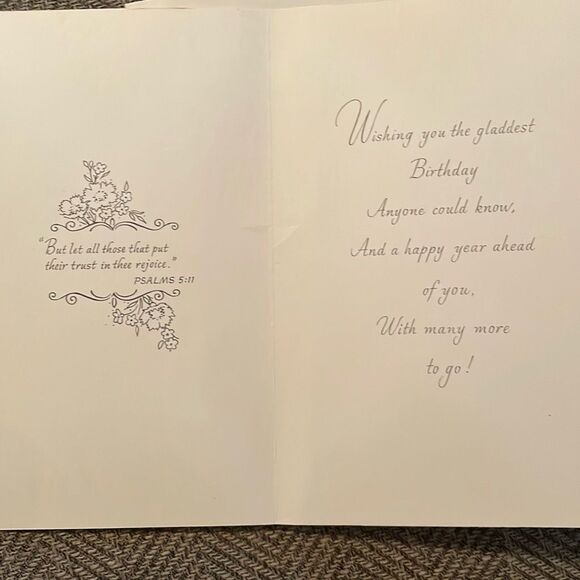 "But let all those that put
their trust in thee rejoice."
PSALMS 5:11
Wishing you the gladdest
Birthday
Anyone could know,
And a happy year ahead
of you,
With many more
to go!